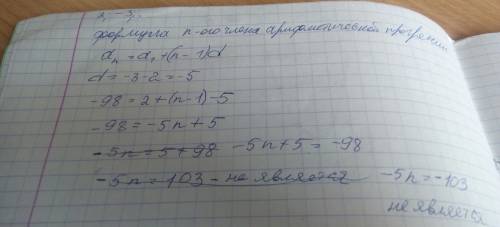 2, -3,
формула n-ого члена арифметической прогрессии
aₙ = a₁ + (n-1)d
d = -3-2 = -5
-98 = 2 + (n-1)-5
-98 = -5n + 5
-5n = 5 + 98 -5n + 5 = -98
-5n = 103 - не является -5n = -103
не является